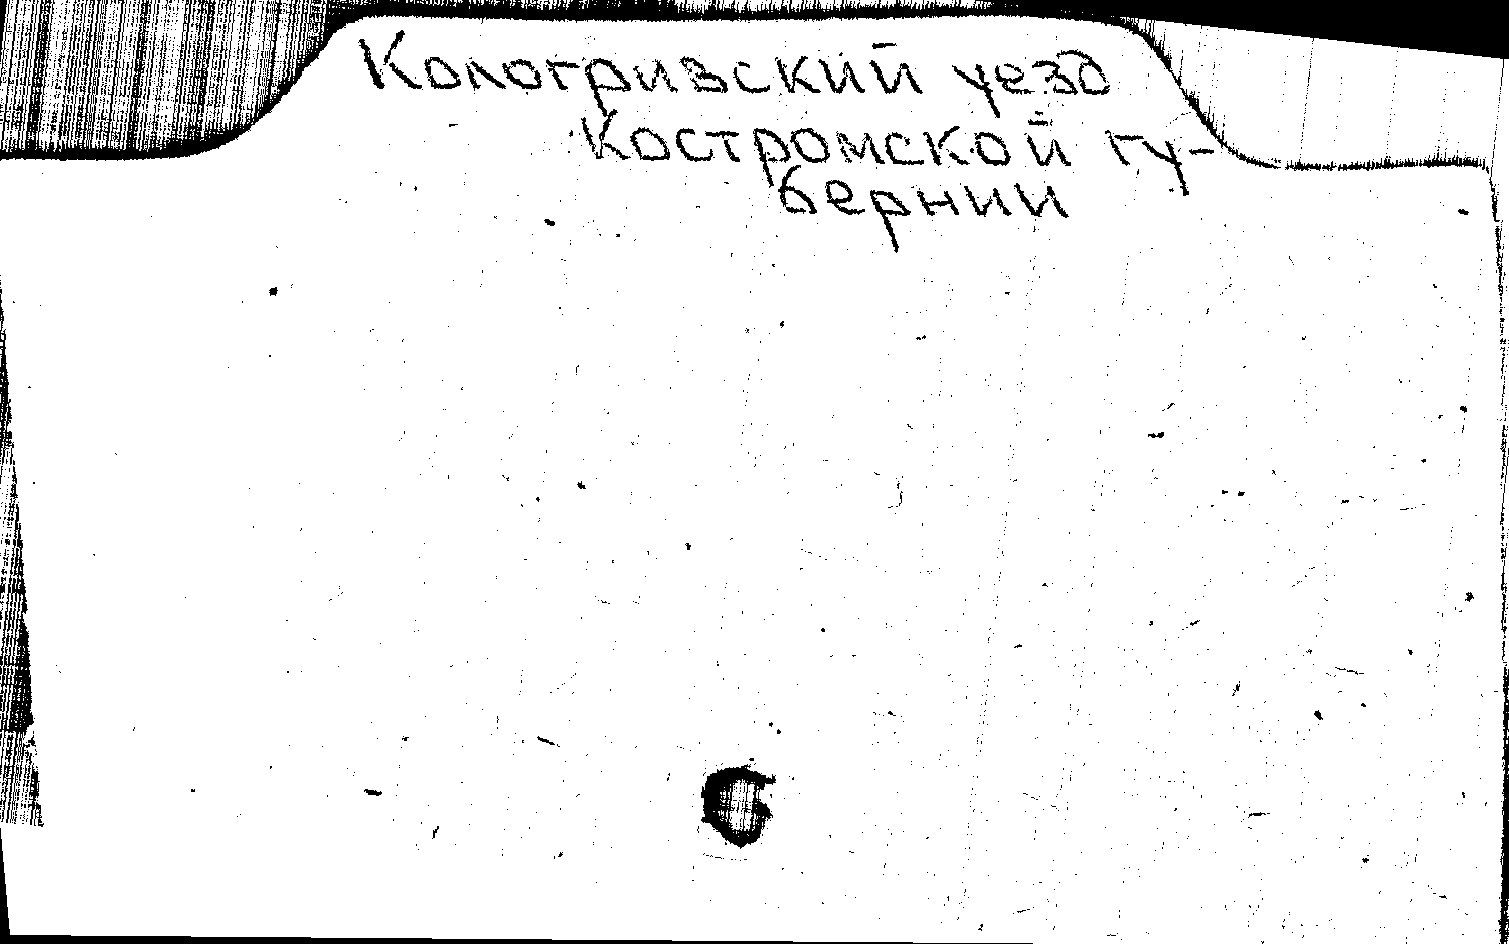 Кологривский уезд
Костромской гу-
бернии